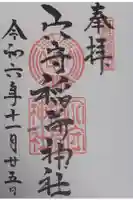 奉拝
山寺稲荷神社
令和六年十一月廿五日